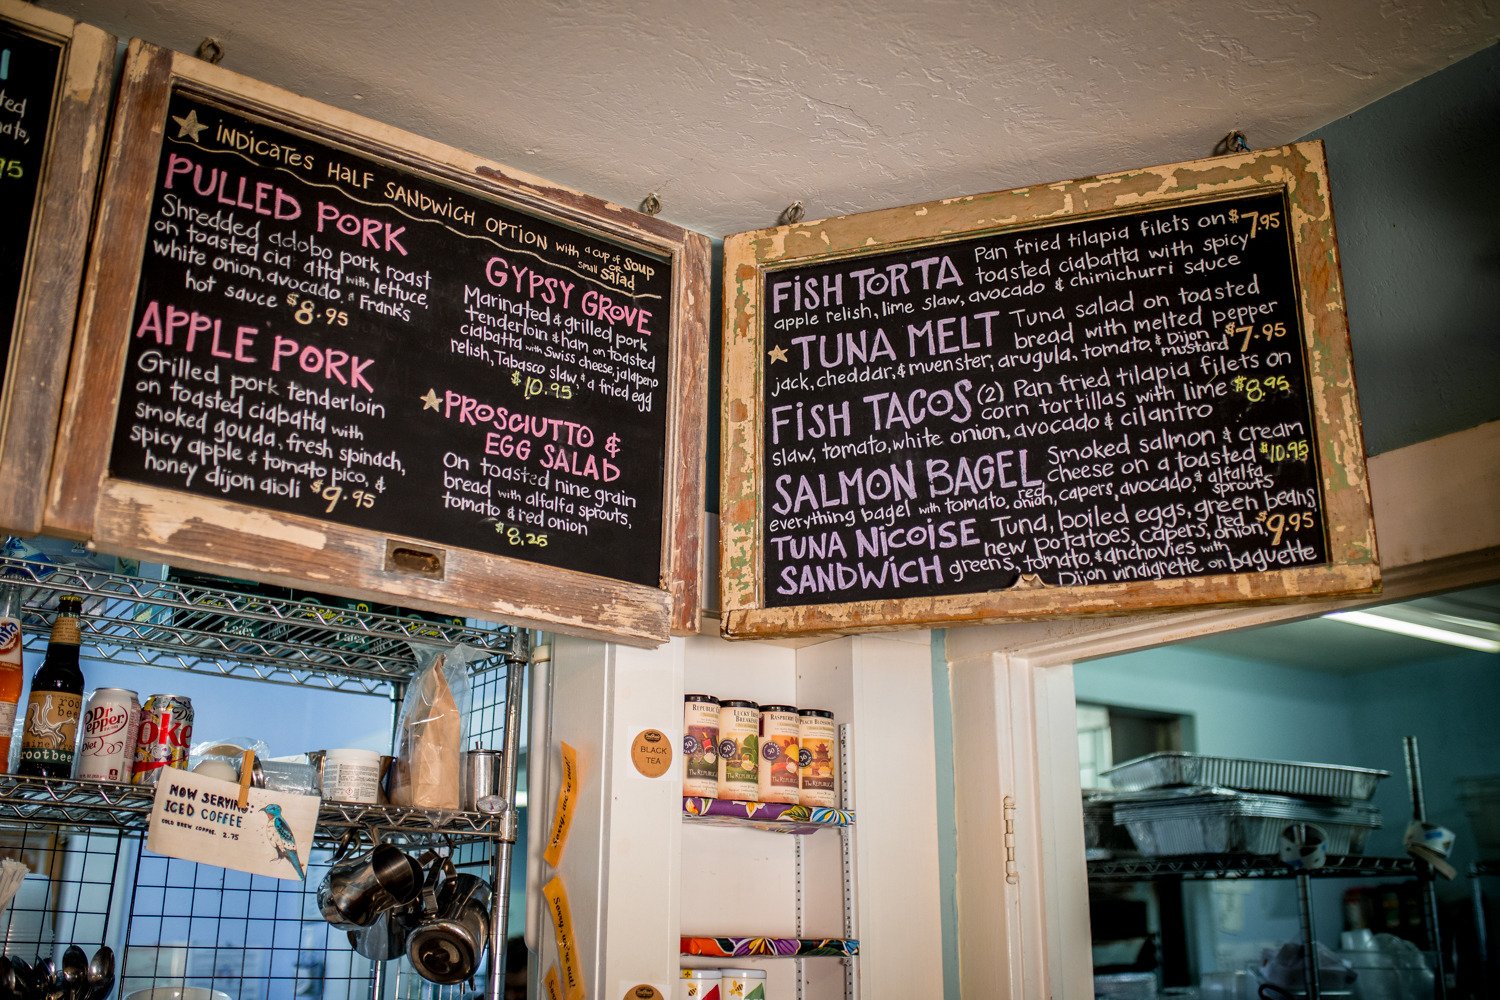 ted
ato,
95
INDICATES HALF SANDWICH OPTION with a cup of soup
OR
small salad
PULLED PORK
Shredded adobo pork roast
on toasted cia atta with lettuce,
white onion, avocado, & Frank's
hot sauce $8.95
APPLE PORK
Grilled pork tenderloin
on toasted ciabatta with
smoked gouda, fresh spinach,
spicy apple & tomato pico, &
honey dijon aioli $9.95
GYPSY GROVE
Marinated & grilled pork
tenderloin & ham on toasted
ciabatta with Swiss cheese, jalapeno
relish, Tabasco slaw, & a fried egg
$10.95
PROSCIUTTO &
EGG SALAD
On toasted nine grain
bread with alfalfa sprouts,
tomato & red onion
$8.25
FISH TORTA Pan fried tilapia filets on $7.95
toasted ciabatta with spicy
apple relish, lime slaw, avocado & chimichurri sauce
TUNA MELT Tuna salad on toasted
bread with melted pepper
jack, cheddar, & muenster, arugula, tomato, & Dijon mustard $7.95
FISH TACOS (2) Pan fried tilapia filets on
corn tortillas with lime $8.95
slaw, tomato, white onion, avocado & cilantro
SALMON BAGEL Smoked salmon & cream
cheese on a toasted $10.95
everything bagel with tomato, red onion, capers, avocado, & alfalfa sprouts
TUNA NICOISE Tuna, boiled eggs, green beans
new potatoes, capers, red onion, $9.95
SANDWICH greens, tomato, & anchovies with
Dijon vindigrette on baguette
Latex
Latex
root
beer
rootbeer
Dr
Pepper
Diet
Coke
NOW SERVING:
ICED COFFEE
COLD BREW COFFEE 2.75
BLACK
TEA
REPUBLIC
LUCKY
BREAKFAST
RASPBERRY
PEACH BLOSSOM
50
50
50
50
THE REPUBLIC
THE REPUBLIC
THE REPUBLIC
THE REPUBLIC
Sorry, we're out!
Sorry, we're out!